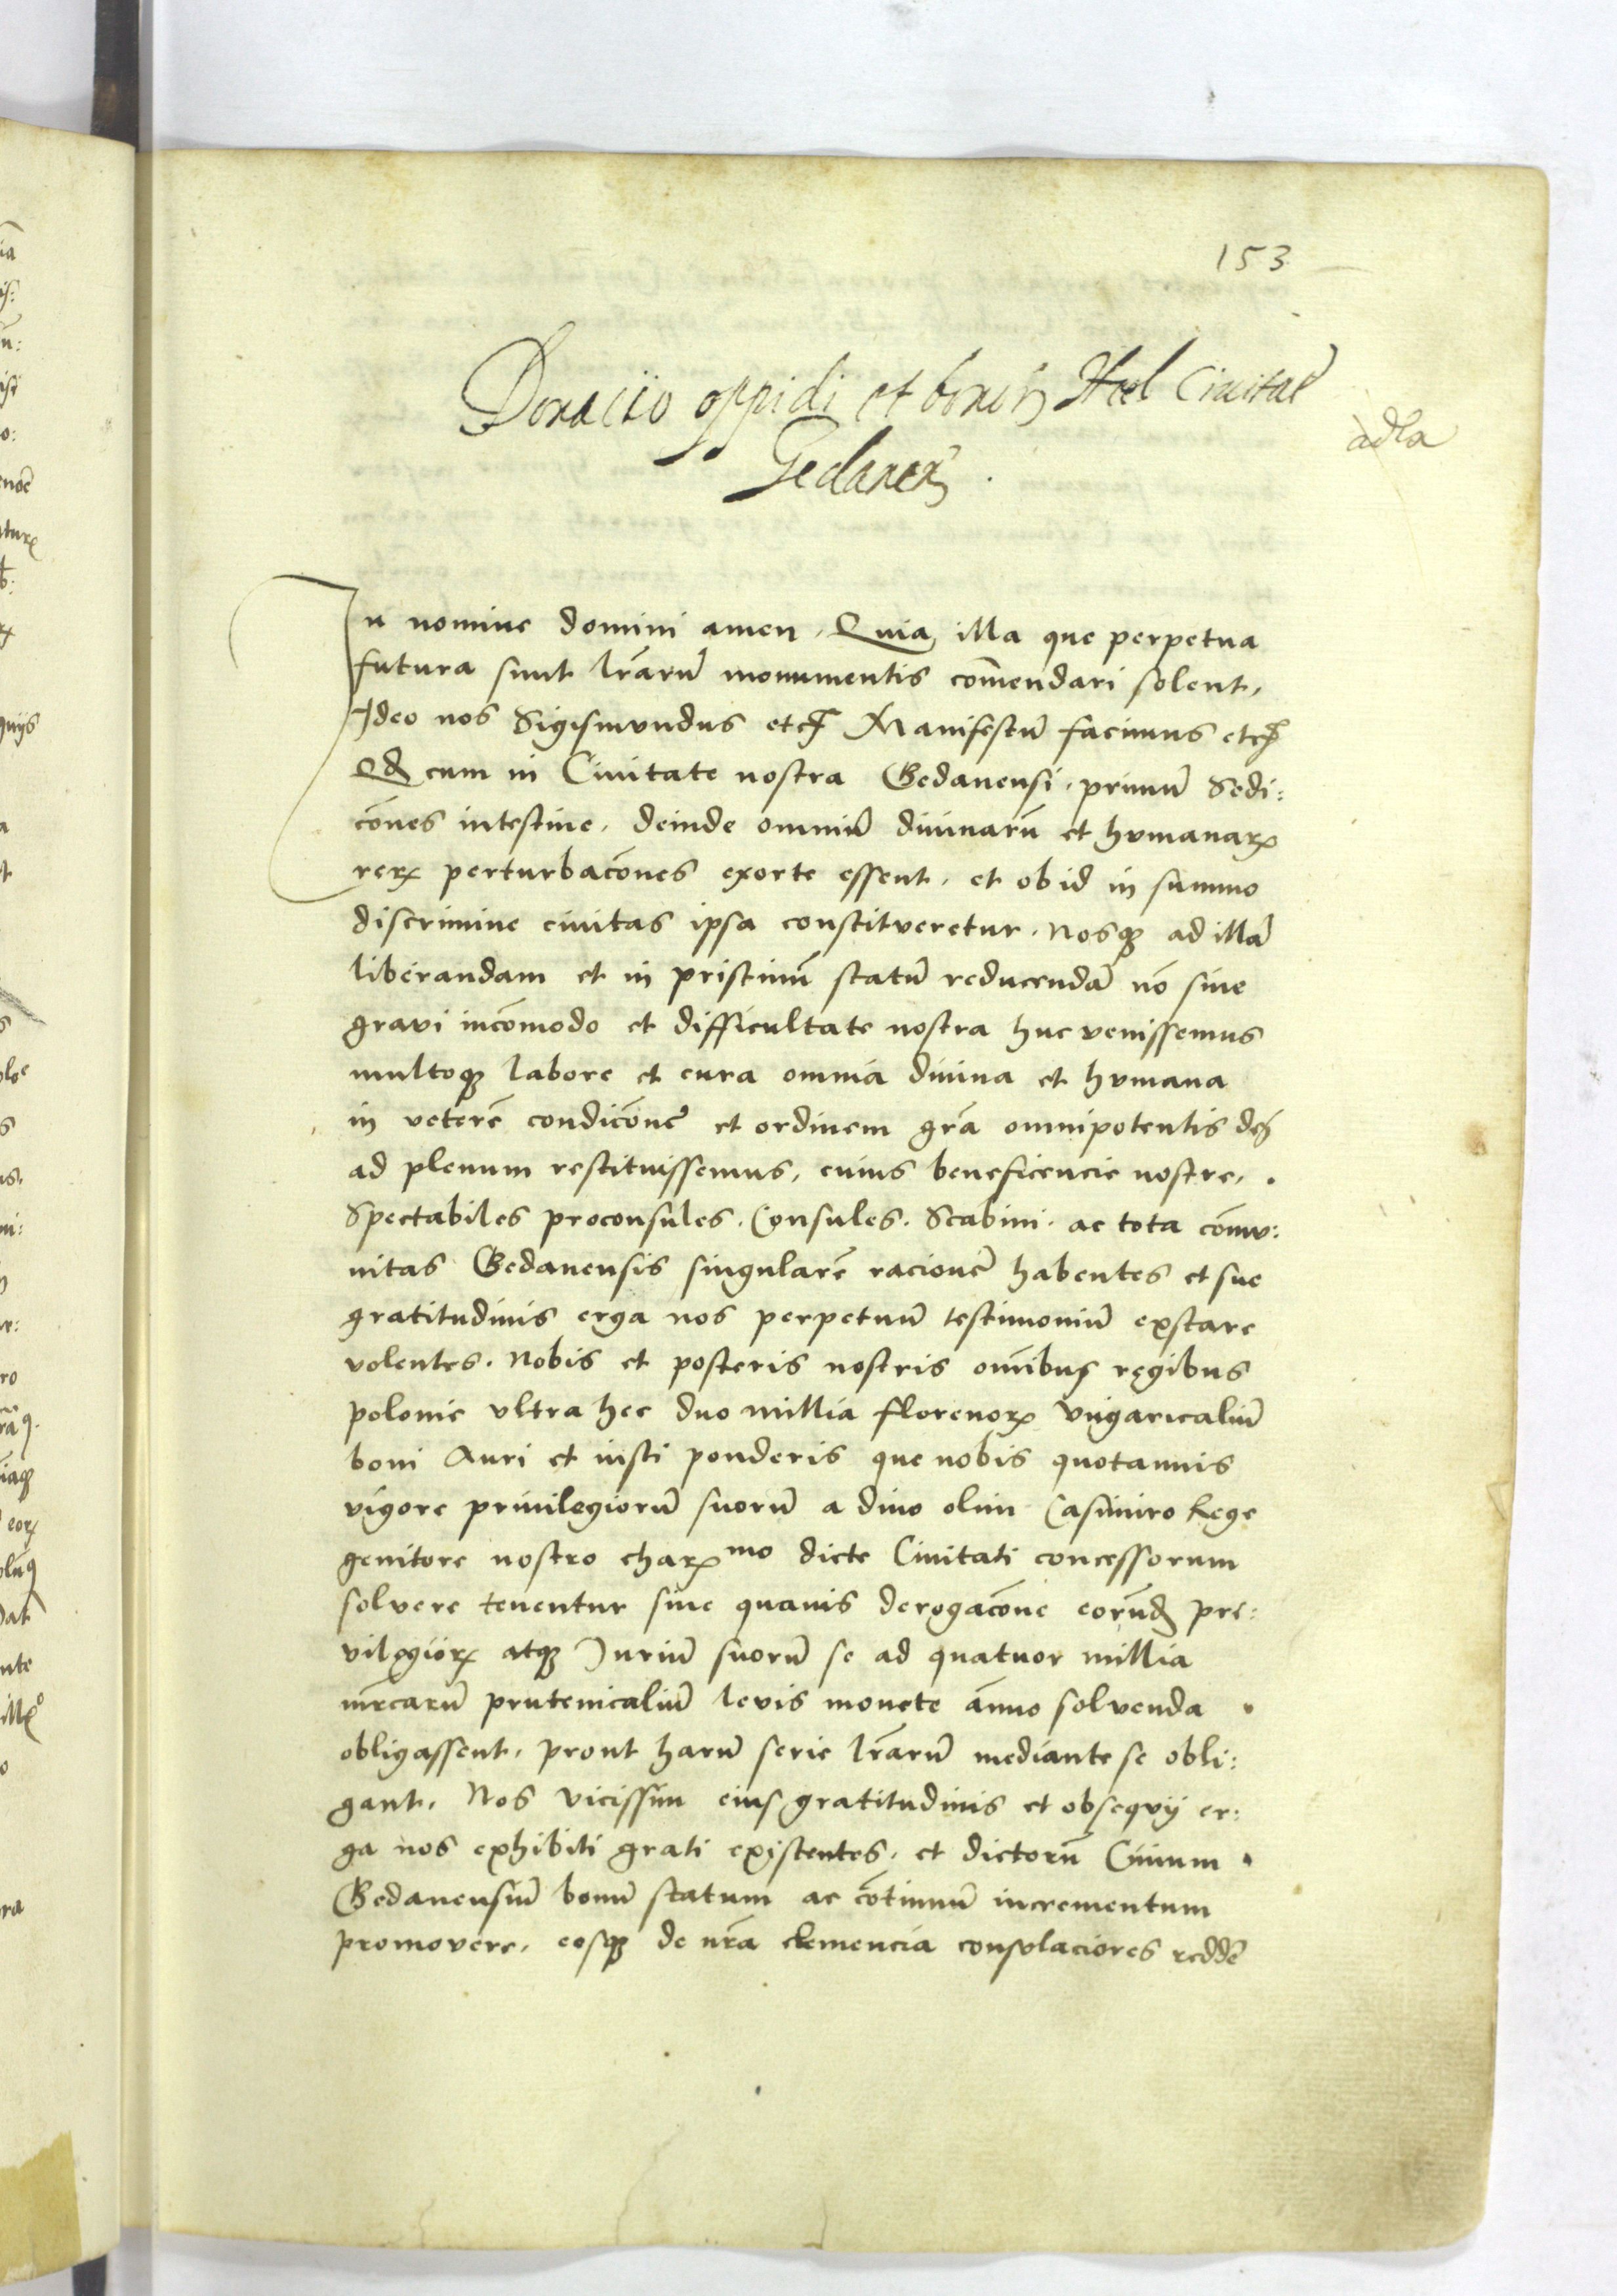 153
Donacio oppidi et bonorū Heel Ciuitaē
adla
Gedaneñ.
In nomine domini amen. Quia illa que perpetua
futura sunt lr̄arū monumentis com̄endari solent.
Ideo nos Sigismundus etc̄ Manifestū facimus etc̄
Qd̄ cum in Ciuitate nostra Gedanensi. primū Sedi:
cōnes intestine. deinde omniū diuinarū et humanarꝝ
rerꝝ perturbacōnes exorte essent. et ob id in summo
discrimine ciuitas ipsa constitueretur. Nosqꝫ ad illā
liberandam et in pristinū statū reducendā nō sine
gravi incōmodo et difficultate nostra huc venissemus
multoqꝫ labore et cura omnia diuina et humana
in veterē condicōnē et ordinem gr̄a omnipotentis dei
ad plenum restituissemus. cuius beneficencie nostre.
Spectabiles proconsules. Consules. Scabini. ac tota cōmu:
nitas Gedanensis singularē racionē habentes et sue
gratitudinis erga nos perpetuū testimoniū exstare
volentes. Nobis et posteris nostris om̄ibus regibus
polonie vltra hec duo millia florenorꝝ vngaricaliū
boni Auri et iusti ponderis que nobis quotannis
vigore priuilegiorū suorū a diuo olim Casimiro Rege
genitore nostro charꝝmo dicte Ciuitati concessorum
solvere tenentur sine quauis derogacōne eorūdꝫ pre:
vilegiorꝝ atqꝫ Juriū suorū se ad quatuor millia
mr̄carū prutenicaliū levis monete an̄uo solvenda
obligassent. prout harū serie lr̄arū mediante se obli:
gant. Nos vicissim eius gratitudinis et obsequij er:
ga nos exhibiti grati existentes. et dictorū Ciuium
Gedanensiū bonū statum ac cōtinuū incrementum
promovere. eosqꝫ de nr̄a clemencia consolaciores reddē